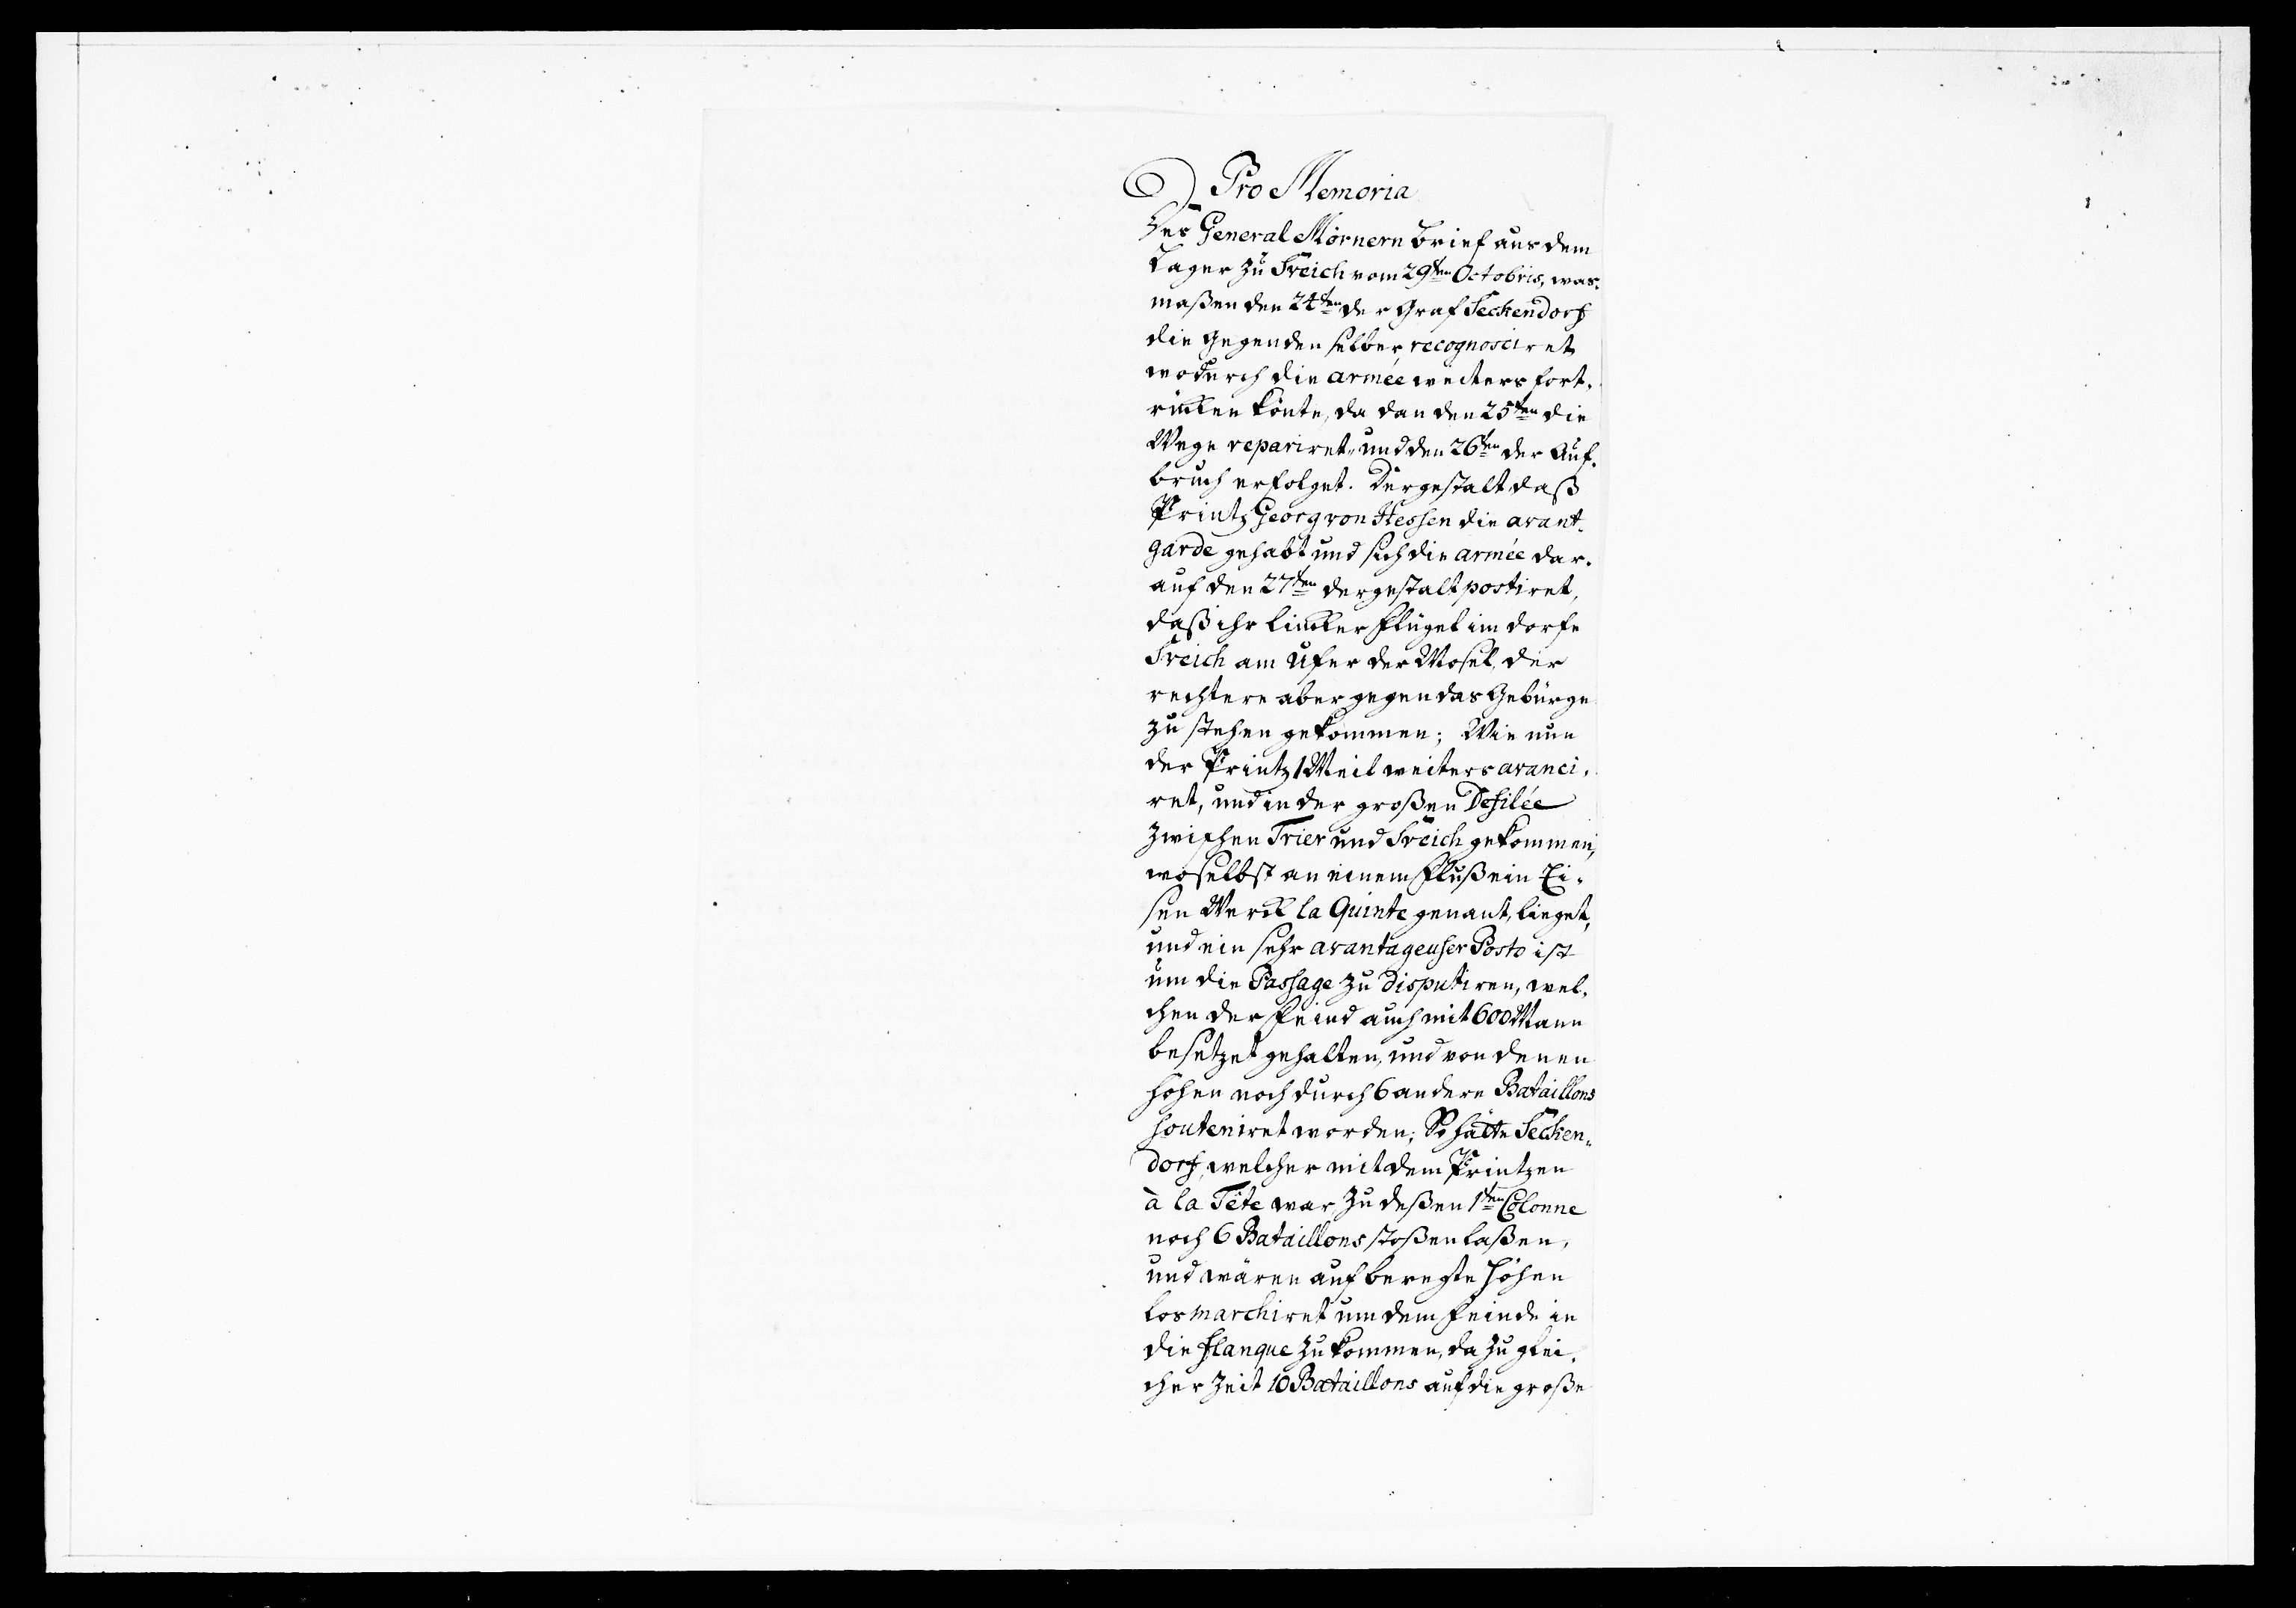 Pro Memoria
Des General Mörnern Brief aus dem
Lager zu Sveich vom 29ten Octobris, was-
maßen den 24ten der Graf Seckendorf
die Gegenden selber recognosciret
wodurch die armée weiters fort-
rücken könte, da dan den 25ten die
Wege repariret, und den 26ten der Auf-
bruch erfolget. Dergestalt daß
Printz Georg von Hessen die avant-
garde gehabt und sich die armée dar-
auf den 27ten dergestalt postiret,
daß ihr lincker Flügel im dorfe
Sveich am Ufer der Mosel, der
rechtere aber gegen das Gebürge
zu stehen gekommen; Wie nun
der Printz 1 Meil weiters avanci-
ret, und in der großen Defilée
zwischen Trier und Sveich gekommen,
woselbst an einem Fluß ein Ei-
sen Werck la Quinte genant, lieget,
und ein sehr avantageuser Posto ist
um die Passage zu disputiren, wel-
chen der Feind auch mit 600 Mann
besetzet gehalten, und von denen
Höhen noch durch 6 andere Bataillons
souteniret worden; So hätte Secken-
dorf, welcher mit dem Printzen
à la Tête war, zu deßen 1ten Colonne
noch 6 Bataillons stoßen laßen,
und wären auf beregte Höhen
los marchiret um dem Feinde in
die flanque zu kommen, da zu glei-
cher Zeit 10 Bataillons auf die große